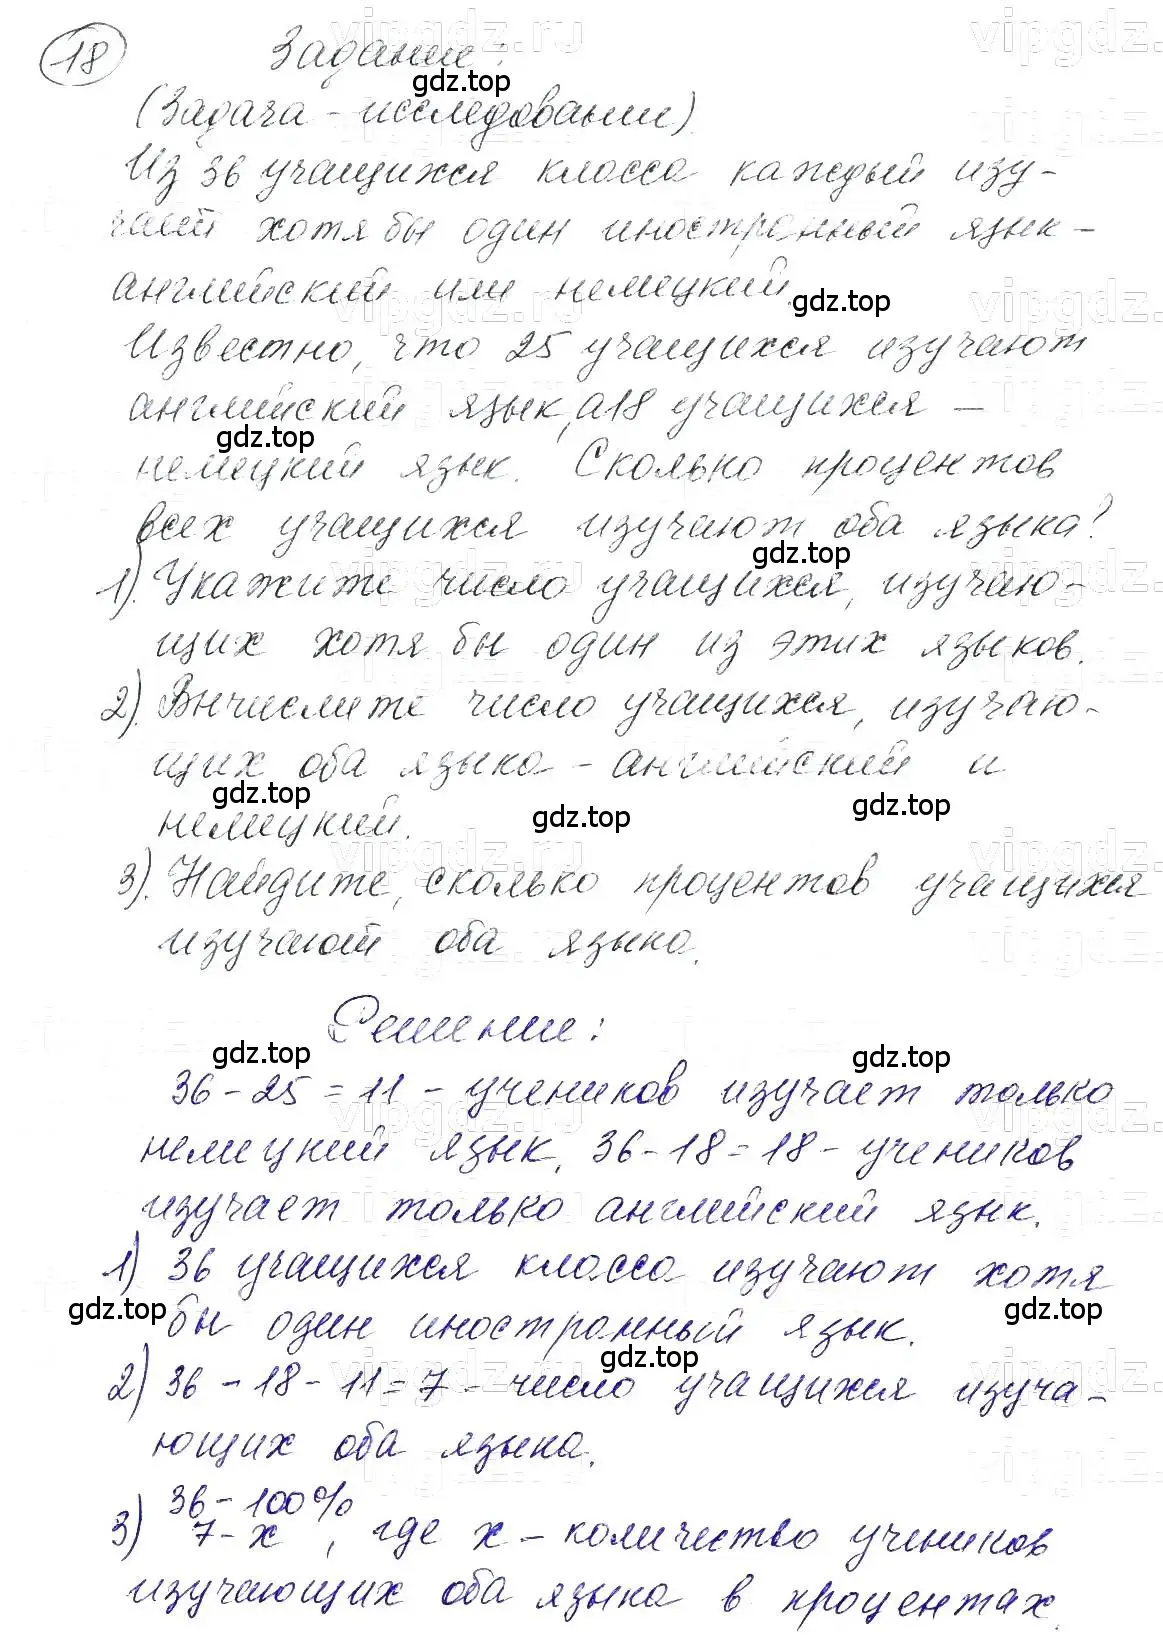 18 Задание:
(Задача - исследование)
Из 36 учащихся класса каждый изу-
чает хотя бы один иностранный язык -
английский или немецкий.
Известно, что 25 учащихся изучают
английский язык, а 18 учащихся -
немецкий язык. Сколько процентов
всех учащихся изучают оба языка?
1). Укажите число учащихся, изучаю-
щих хотя бы один из этих языков.
2). Вычислите число учащихся, изучаю-
щих оба языка - английский и
немецкий.
3). Найдите, сколько процентов учащихся
изучают оба языка.
Решение:
36 - 25 = 11 - учеников изучает только
немецкий язык, 36 - 18 = 18 - учеников
изучает только английский язык.
1) 36 учащихся класса изучают хотя
бы один иностранный язык.
2) 36 - 18 - 11 = 7 - число учащихся изуча-
ющих оба языка.
36 - 100%
3) 7 - x , где x - количество учеников
изучающих оба языка в процентах.
gdz.top
gdz.top
gdz.top
gdz.top
gdz.top
gdz.top
gdz.top
gdz.top
gdz.top
gdz.top
gdz.top
gdz.top
vipgdz.ru
vipgdz.ru